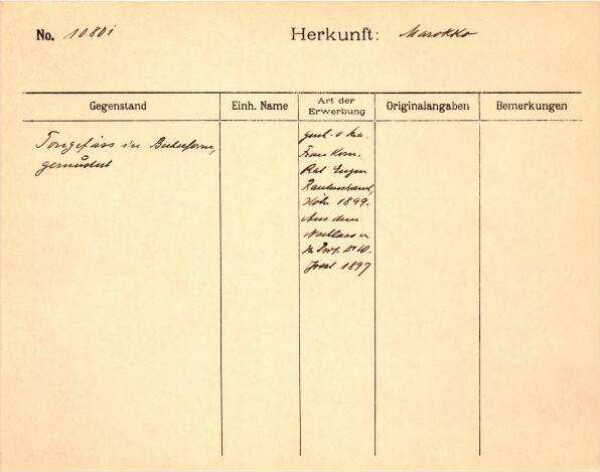 No. 10801 Herkunft: Marokko
Gegenstand Einh. Name Art der Erwerbung Originalangaben Bemerkungen
Tongefäss in Becherform,
gemustert
Frau Kom.
Rat Eugen
Rautenstrauch,
Köln 1899.
Aus dem
Nachlass v.
H. Prof. Dr W.
Joest 1897